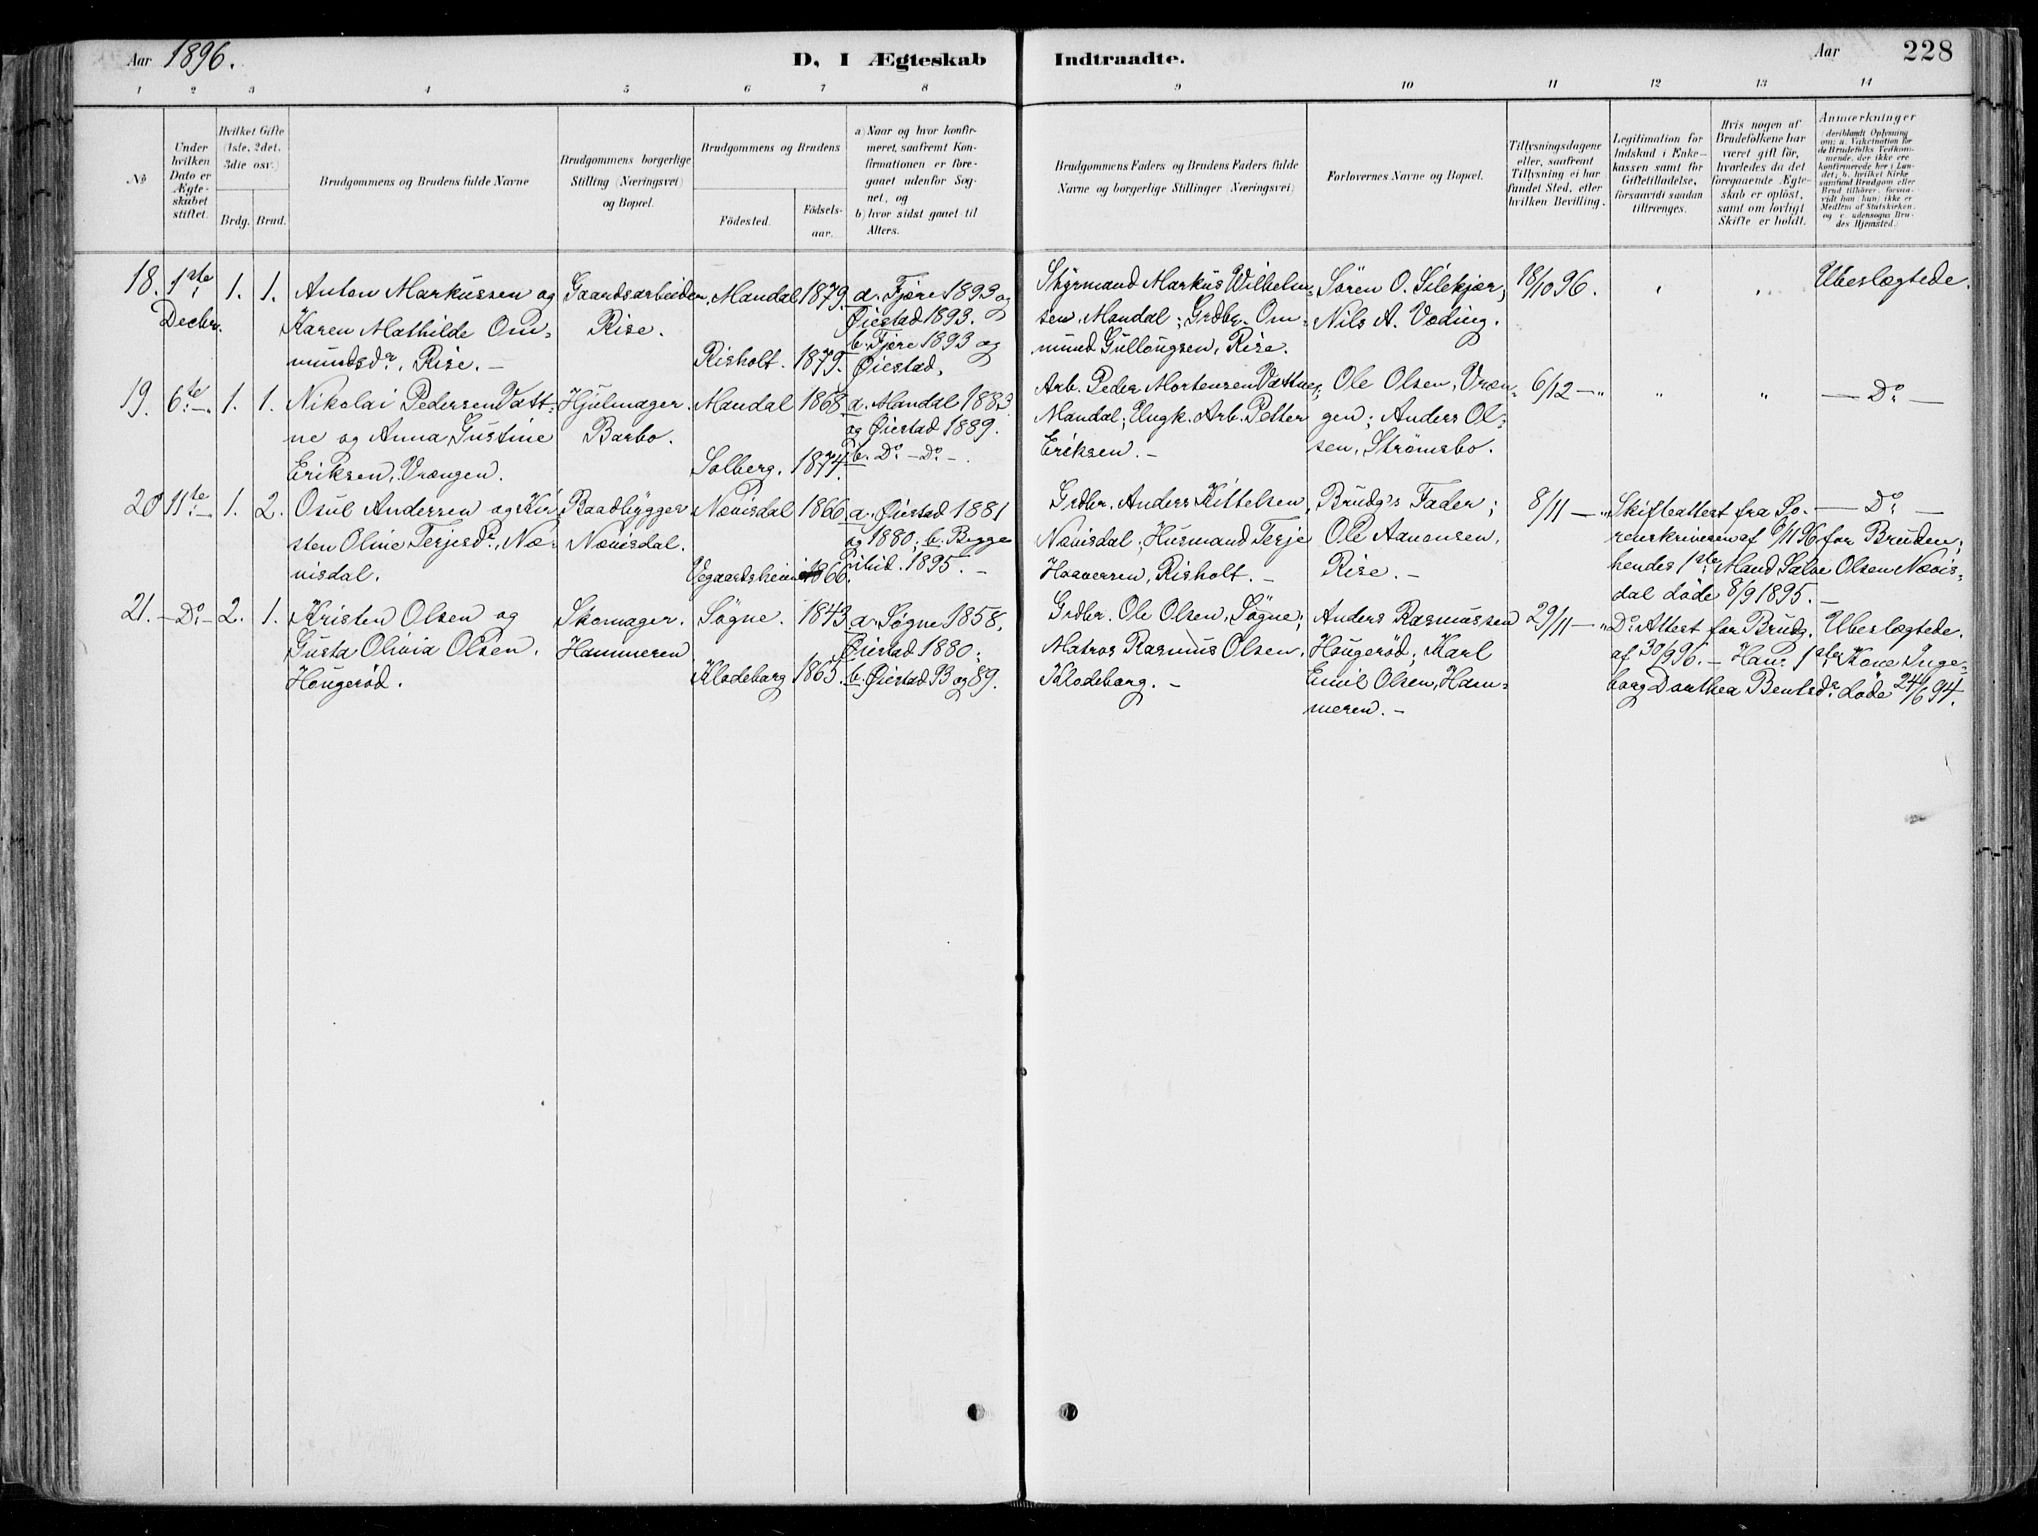 Aar 1896.
D, I Ægteskab Indtraadte.
Aar 228
1 2 3 4 5 6 7 8 9 10 11 12 13 14
No
Under hvilken Dato er Ægteskabet stiftet.
Hvilket Gifte (1ste, 2det, 3die osv.)
Brdg. Brud.
Brudgommens og Brudens fulde Navne
Brudgommens borgerlige Stilling (Næringsvei) og Bopæl.
Brudgommens og Brudens
Födested.
Födsels-aar.
a) Naar og hvor konfirmeret, saafremt Konfirmationen er foregaaet udenfor Sognet, og
b) hvor sidst gaaet til Alters.
Brudgommens Faders og Brudens Faders fulde Navne og borgerlige Stillinger (Næringsvei)
Forlovernes Navne og Bopæl.
Tillysningsdagene eller, saafremt Tillysning ei har fundet Sted, efter hvilken Bevilling.
Legitimation for Indskud i Enkekassen samt for Giftetilladelse, forsaavidt saadan tiltrænges.
Hvis nogen af Brudefolkene har været gift før, hvorledes da det foregaaende Ægteskab er oplöst, samt om lovligt Skifte er holdt.
Anmærkninger
(deriblandt Oplysning om: a. Vakcination for de Brudefolks Vedkommende, der ikke ere konfirmerede her i Landet; b. hvilket Kirkesamfund Brudgom eller Brud tilhörer, forsaavidt han (hun) ikke er Medlem af Statskirken, og c. udensogns Brudes Hjemsted.)
18. 1ste Decbr. 1. 1.
Anton Markussen og
Karen Mathilde Om-
mundsdr, Rise. –
Gaardsarbeider,
Rise.
Mandal 1879.
Risholt. 1879.
a. Fjære 1893 og
Øiestad 1893.
b. Fjære 1893 og
Øiestad.
Styrmand Markus Wilhelm-
sen, Mandal; Grdbr. Om-
mund Gullougsen, Rise.
Sören O. Silekjær;
Nils A. Væding.
18/10 96. " "
Ubeslægtede.
19. 6te –. 1. 1.
Nikolai Pedersen Vatt-
ne og Anna Gustine
Eriksen, Vrængen.
Hjulmager.
Barbo.
Mandal 1868
Solberg. 1874.
a. Mandal 1883
og Øiestad 1889.
b. Do – Do –.
Arb. Peder Mortensen Vattne,
Mandal; Ungk. Arb. Petter
Eriksen. –
Ole Olsen, Vræn-
gen; Anders Ol-
sen, Strömsbo.
6/12 – " " "
– Do –
20 11te – 1. 2.
Osul Andersen og Kir-
sten Oline Terjesdr, Næ-
visdal.
Baadbygger
Nævisdal.
Nævisdal 1866
Vegaardsheien 1866.
a. Øiestad 1881
og 1880; b. Begge
ibid. 1895. –
Grdbr. Anders Kittelsen,
Nævisdal; Husmand Terje
Haaversen, Risholt. –
Brudg's Fader;
Ole Aanonsen,
Rise. –
8/11 – "
Skifteattest fra So-
renskriveren af 6/11 96 for Bruden;
hendes 1ste Mand Salve Olsen Nævis-
dal døde 8/9 1895. –
– Do –
21. – Do – 2. 1.
Kristen Olsen og
Gusta Olivia Olsen.
Hougerød.
Skomager.
Hammeren
Søgne. 1843
Klodeborg 1865.
a. Søgne 1858.
Øiestad 1880;
b. Øiestad 93 og 89.
Grdbr. Ole Olsen, Søgne;
Matros Rasmus Olsen,
Klodeborg. –
Anders Rasmussen
Hougerød; Karl
Emil Olsen, Ham-
meren. –
29/11 – "
Do. Attest for Brudg. Ubeslægtede.
af 30/9 96. – Hans 1ste Kone Inge-
borg Dorthea Bentsdr. døde 24/6 94.